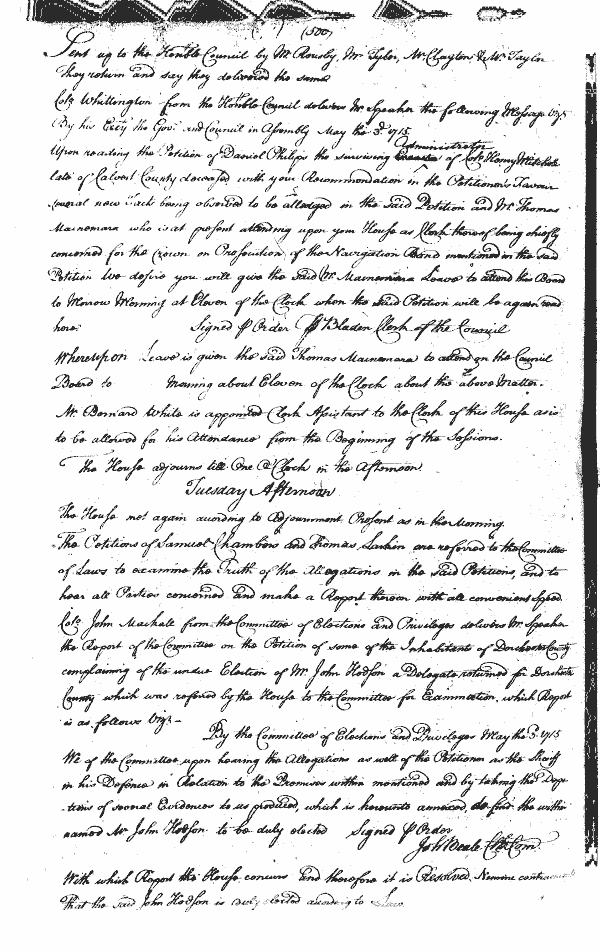 (500)
Sent up to the Honble Council by Mr Rousby, Mr Tyler, Mr Clayton & Mr Taylor
They return and say they delivered the same
Colo Whittington from the Honoble Council delivers Mr Speaker the following Message Vizt
By his Excy the Govr and Council in Assembly May the 3d 1715
Administrator
Upon reading the Petition of Daniel Philips the surviving of Colo Henry Mitchell
late of Calvert County deceased with your Recommendation in the Petitioners Favour
several new Facts being observed to be alledged in the said Petition and Mr Thomas
Macnemara who is at present attending upon your House as Clerk thereof being chiefly
concerned for the Crown on Prosecution of the Navigation Bond mentioned in the said
Petition We desire you will give the said Mr Macnemara Leave to attend this Board
to Morrow Morning at Eleven of the Clock when the said Petition will be again read
here Signed p Order Bladen Clerk of the Council
Whereupon Leave is given the said Thomas Macnemara to attend on the Council
Board to Morning about Eleven of the Clock about the above Matter.
Mr Bernard White is appointed Clerk Assistant to the Clerk of this House as is
to be allowed for his Attendance from the Beginning of the Sessions.
The House adjourns till One a Clock in the Afternoon
Tuesday Afternoon
The House met again according to Adjournment Present as in the Morning
The Petitions of Samuel Chambers and Thomas Larkin are referred to the Committee
of Laws to examine the Truth of the Allegations in the said Petitions, and to
hear all Parties concerned and make a Report thereon with all convenient Speed.
Colo John Mackall from the Committee of Elections and Privileges delivers Mr Speaker
the Report of the Committee on the Petition of some of the Inhabitants of Dorchester County
complaining of the undue Election of Mr John Hodson a Delegate returned for Dorchester
County which was referred by the House to the Committee for Examination, which Report
is as follows Vizt
By the Committee of Elections and Privileges May the 3d 1715
We of the Committee upon hearing the Allegations as well of the Petitioners as the Sheriff
in his Defence in Relation to the Premises within mentioned and by taking the Depo
sitions of several Evidences to us produced, which is hereunto annexed, do find the within
named Mr John Hodson to be duly elected Signed p Order
Jos Beale Cl Com
With which Report the House concurs and therefore it is Resolved Nemine
That the said John Hodson is duly elected according to Law